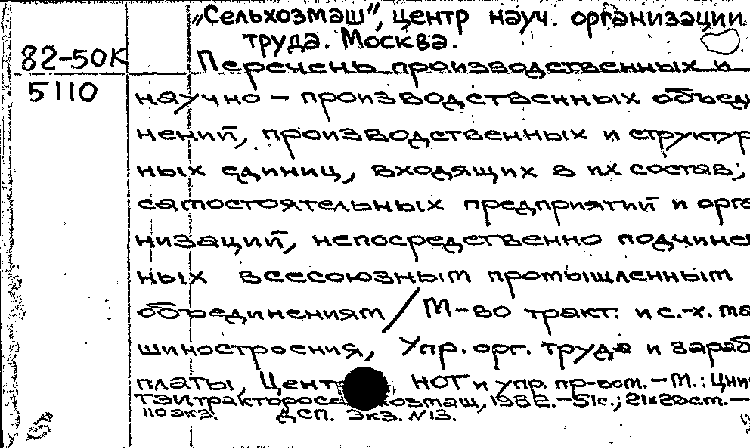 „Сельхозмаш", центр науч. организации
труда. Москва.
82-50К
Перечень производственных и
5110
научно-производственных объеди
нений, производственных и структур
ных единиц, входящих в их состав;
самостоятельных предприятий и орга
низаций, непосредственно подчинен
ных всесоюзным промышленным
объединениям / М-во тракт. и с.-х. ма
шиностроения, Упр. орг. труда и зараб
платы, Центр НОТ и упр. пр-вом. - М.:
110 экз. ДСП. Экз. №13.